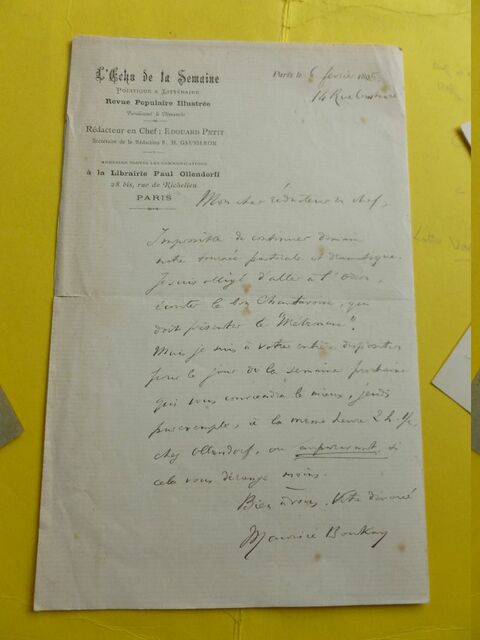 L'Echo de la Semaine
POLITIQUE & LITTÉRAIRE
Revue Populaire Illustrée
Paraissant le Dimanche
Rédacteur en Chef : EDOUARD PETIT
Secrétaire de la Rédaction B. H. GAUSSERON
ADRESSER TOUTES LES COMMUNICATIONS
à la Librairie Paul Ollendorff
28 bis, rue de Richelieu
PARIS
Paris le 6 février 189
14 Rue
Mon cher rédacteur en chef,
Impossible de continuer demain
notre tournée pastorale et dramatique.
Je suis obligé d'aller à l'
écouter le bon Chantavoine, qui
doit présenter le "Ménage".
Mais je suis à votre entière disposition
pour le jour de la semaine prochaine
qui vous conviendra le mieux, jeudi
par exemple, à la même heure 2 h. 1/2,
chez Ollendorf, ou auparavant, si
cela vous dérange moins.
Bien à vous. Votre dévoué
Maurice Boukay